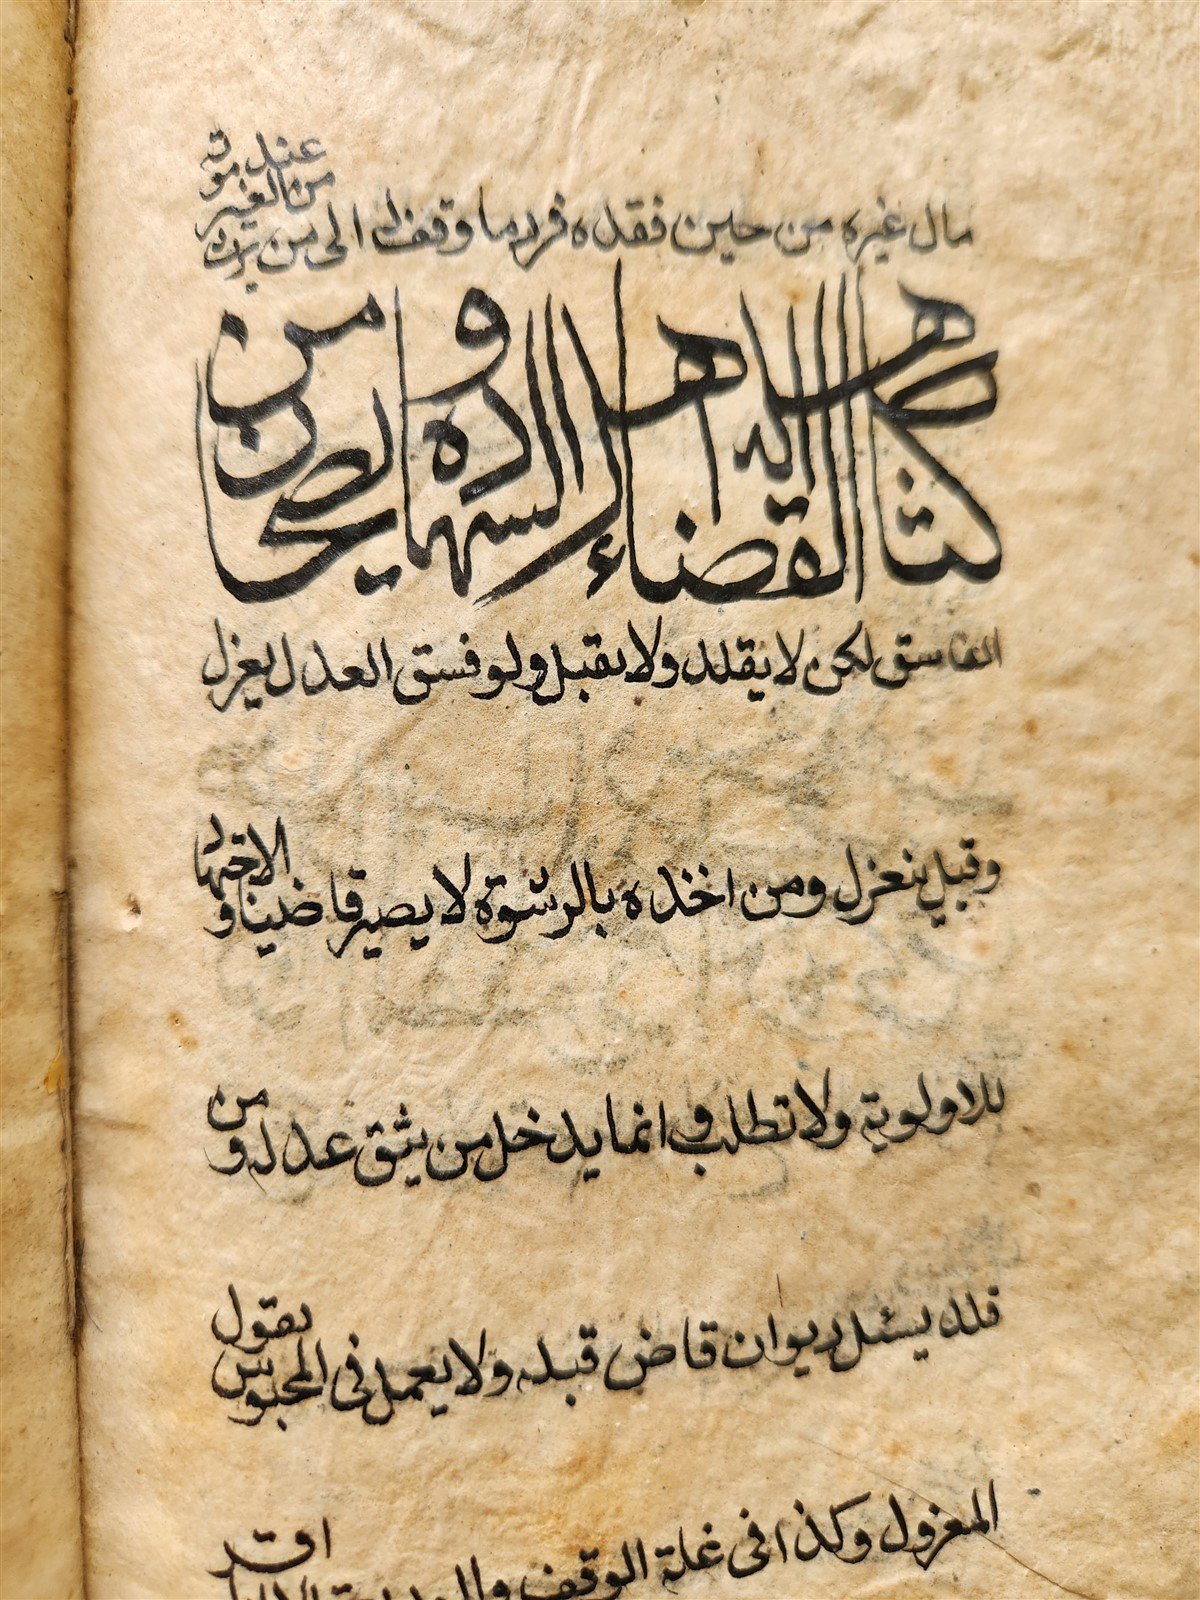 مال غيره من حين فقده فيرد ما وقف له الى من يرث من مال الغير عند موته
كتاب القضاء اهله اهل الشهادة ويصح من
الفاسق لكن لا يقلد ولا يقبل ولو فسق العدل يعزل
وقيل ينعزل ومن اخذه بالرشوة لا يصير قاضيا والاجتهاد
للاولوية ولا تطلب وانما يدخل من يثق عدله ومن
قلد يسئل ديوان قاض قبله ولا يعمل فى المحبوس بقول
المعزول وكذا فى غلة الوقف اقر